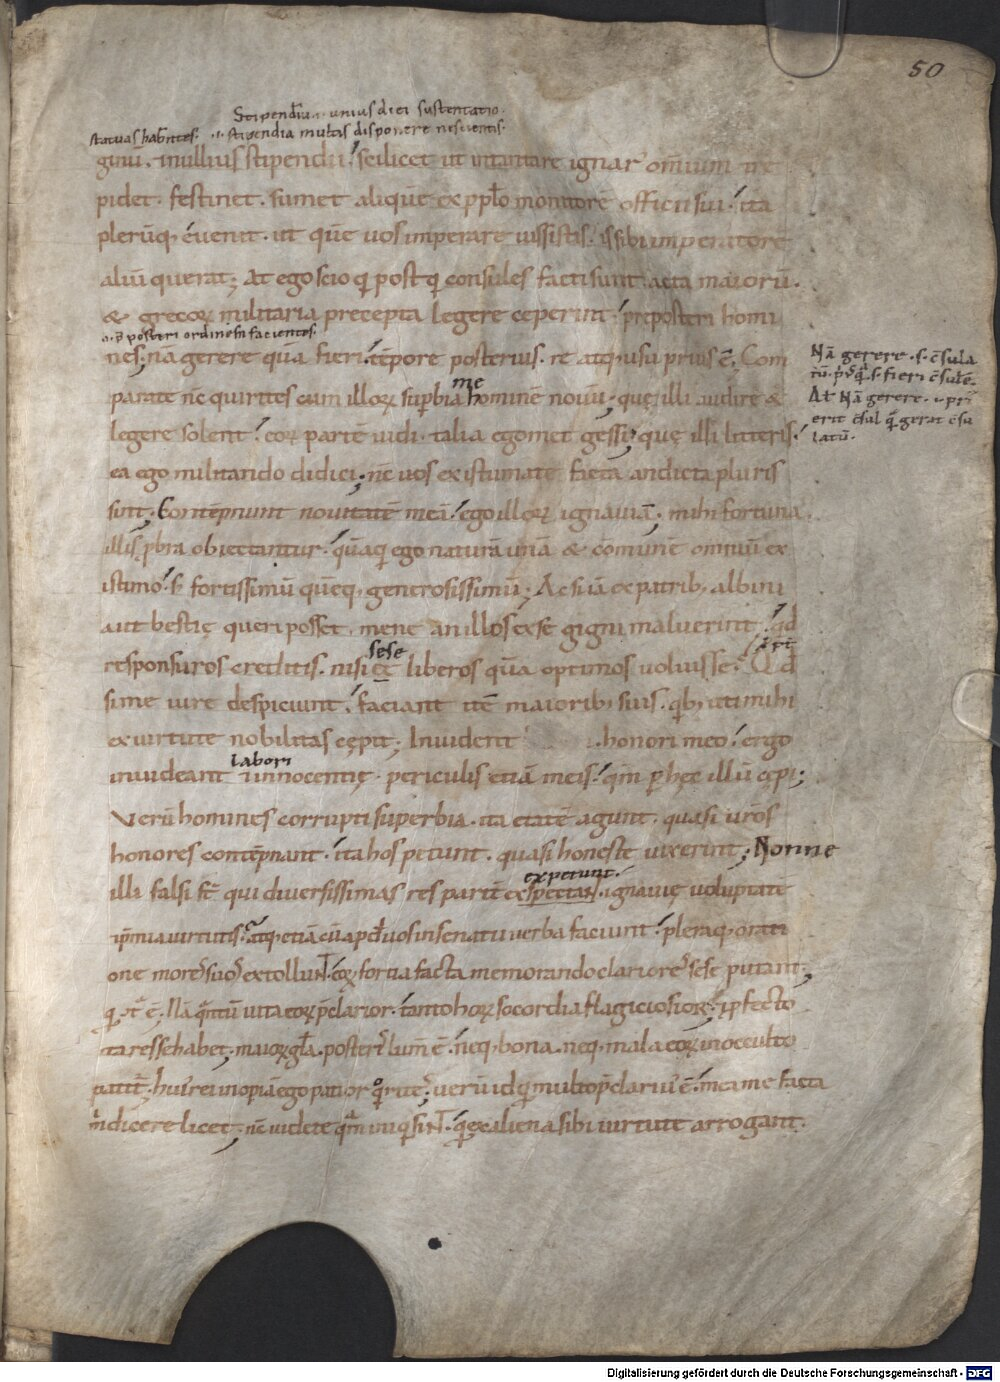 50
Stipendiũ .i. unius diei sustentatio.
statuas habentes. .i. stipendia multis disponere nescientis.
ginũ. &nullius stipendii! scilicet ut intantare ignar' om̅ium tre
pidet. festinet. sumet aliquẽ ex pp̅lo monitorẽ officii sui. ita
plerũq; euenit. ut quẽ uos imperare iussistis. is sibi imperatorẽ
aliũ querat; At ego scio q̇ postq̇ consules facti sunt. acta maiorũ.
& grecoꝝ militaria precepta legere ceperint. preposteri homi
posteri ordinem facientes.
nes; nã gerere quã fieri. tẽpore posterius. re atq; usu prius ẽ; Com
parate nc̃ quirites cum illoꝝ sup̱bia me hominẽ nouũ; quę illi audire &
legere solent. eoꝝ partẽ uidi. talia egomet gessi; quę illi litteris.
ea ego militando didici; nc̃ uos existimate facta an dicta pluris
sint; Contẽpnunt nouitatẽ meã. ego illoꝝ ignauiã; mihi fortuna.
illis ꝓbra obiectantur. quãq̇ ego naturã unã & cõmunẽ omniũ ex
istimo. s; fortissimũ quẽq; generosissimũ; Ac si iã ex patrib; albini
aut bestię queri posset. mene an illos ex se gigni maluerint. qd
responsuros creditis. nisi sese liberos quã optimos uoluisse. Qd
si me iure despiciunt. faciant itẽ maiorib; suis. qb; uti mihi
ex uirtute nobilitas cępit; Inuident honori meo. ergo
inuideant labori & innocentię. periculis etiã meis. qm̃ p̱ hęc illũ cępi;
Verũ homines corrupti superbia. ita etatẽ agunt. quasi uros̃
honores contẽpnant. ita hos petunt. quasi honeste uixerint; Nonne
experunt.
illi falsi st̃ qui diuersissimas res partẽ exspectant. ignauię uoluptatẽ
& p̃mia uirtutis. atq; etiã cũ apd' uos in senatu uerba faciunt. pleraq; orati
one mores suos extollunt. eoꝝ fortia facta memorando clariores sese putant;
q' &ͨ ẽ. Nã quantũ uita eoꝝ p̃clarior. tanto hoꝝ socordia flagiciosior; & p̱fecto
ita res se habet; maioꝝ gl̃a. posteris lumẽ ẽ. neq; bona. neq; mala eoꝝ in occulto
patit'. hui' rei inopiã ego patior quirites. uerũ id q̇ multo p̃clari' ẽ. mea me facta
m̃ dicere licet; nc̃ uidete q̃m iniqui sint. q̇ ex aliena sibi uirtute arrogant.
Nã gerere. s. c̃sula
tũ. p' q̃. s. fieri c̃sulẽ.
At Nã gerere. .i. pri'
erit c̃sul q̃ gerat c̃su
latũ.
Digitalisierung gefördert durch die Deutsche Forschungsgemeinschaft - DFG